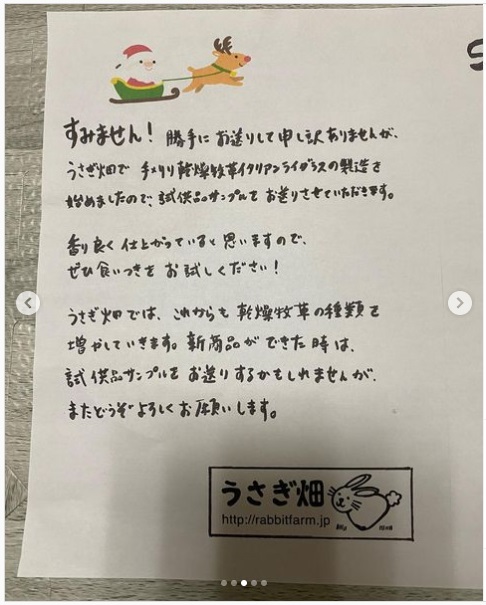 すみません! 勝手にお送りして申し訳ありませんが、
うさぎ畑で 手刈り乾燥牧草イタリアンライグラスの製造を
始めましたので、試供品サンプルを お送りさせていただきます。
香り良く 仕上がっていると 思いますので、
ぜひ食いつきを お試しください!
うさぎ畑では、これからも 乾燥牧草の種類を
増やしていきます。新商品が できた時は、
試供品サンプルを お送りするかもしれませんが、
またどうぞよろしくお願いします。
うさぎ畑
http://rabbitfarm.jp